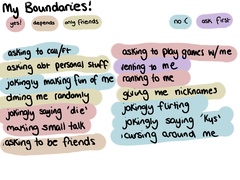 My Boundaries!
yes! depends only friends no :( ask first
asking to call/FT
asking abt personal stuff
jokingly making fun of me
dming me randomly
jokingly saying 'die'
making small talk
asking to be friends
asking to play games w/me
venting to me
ranting to me
giving me nicknames
jokingly flirting
jokingly saying 'kys'
cursing around me